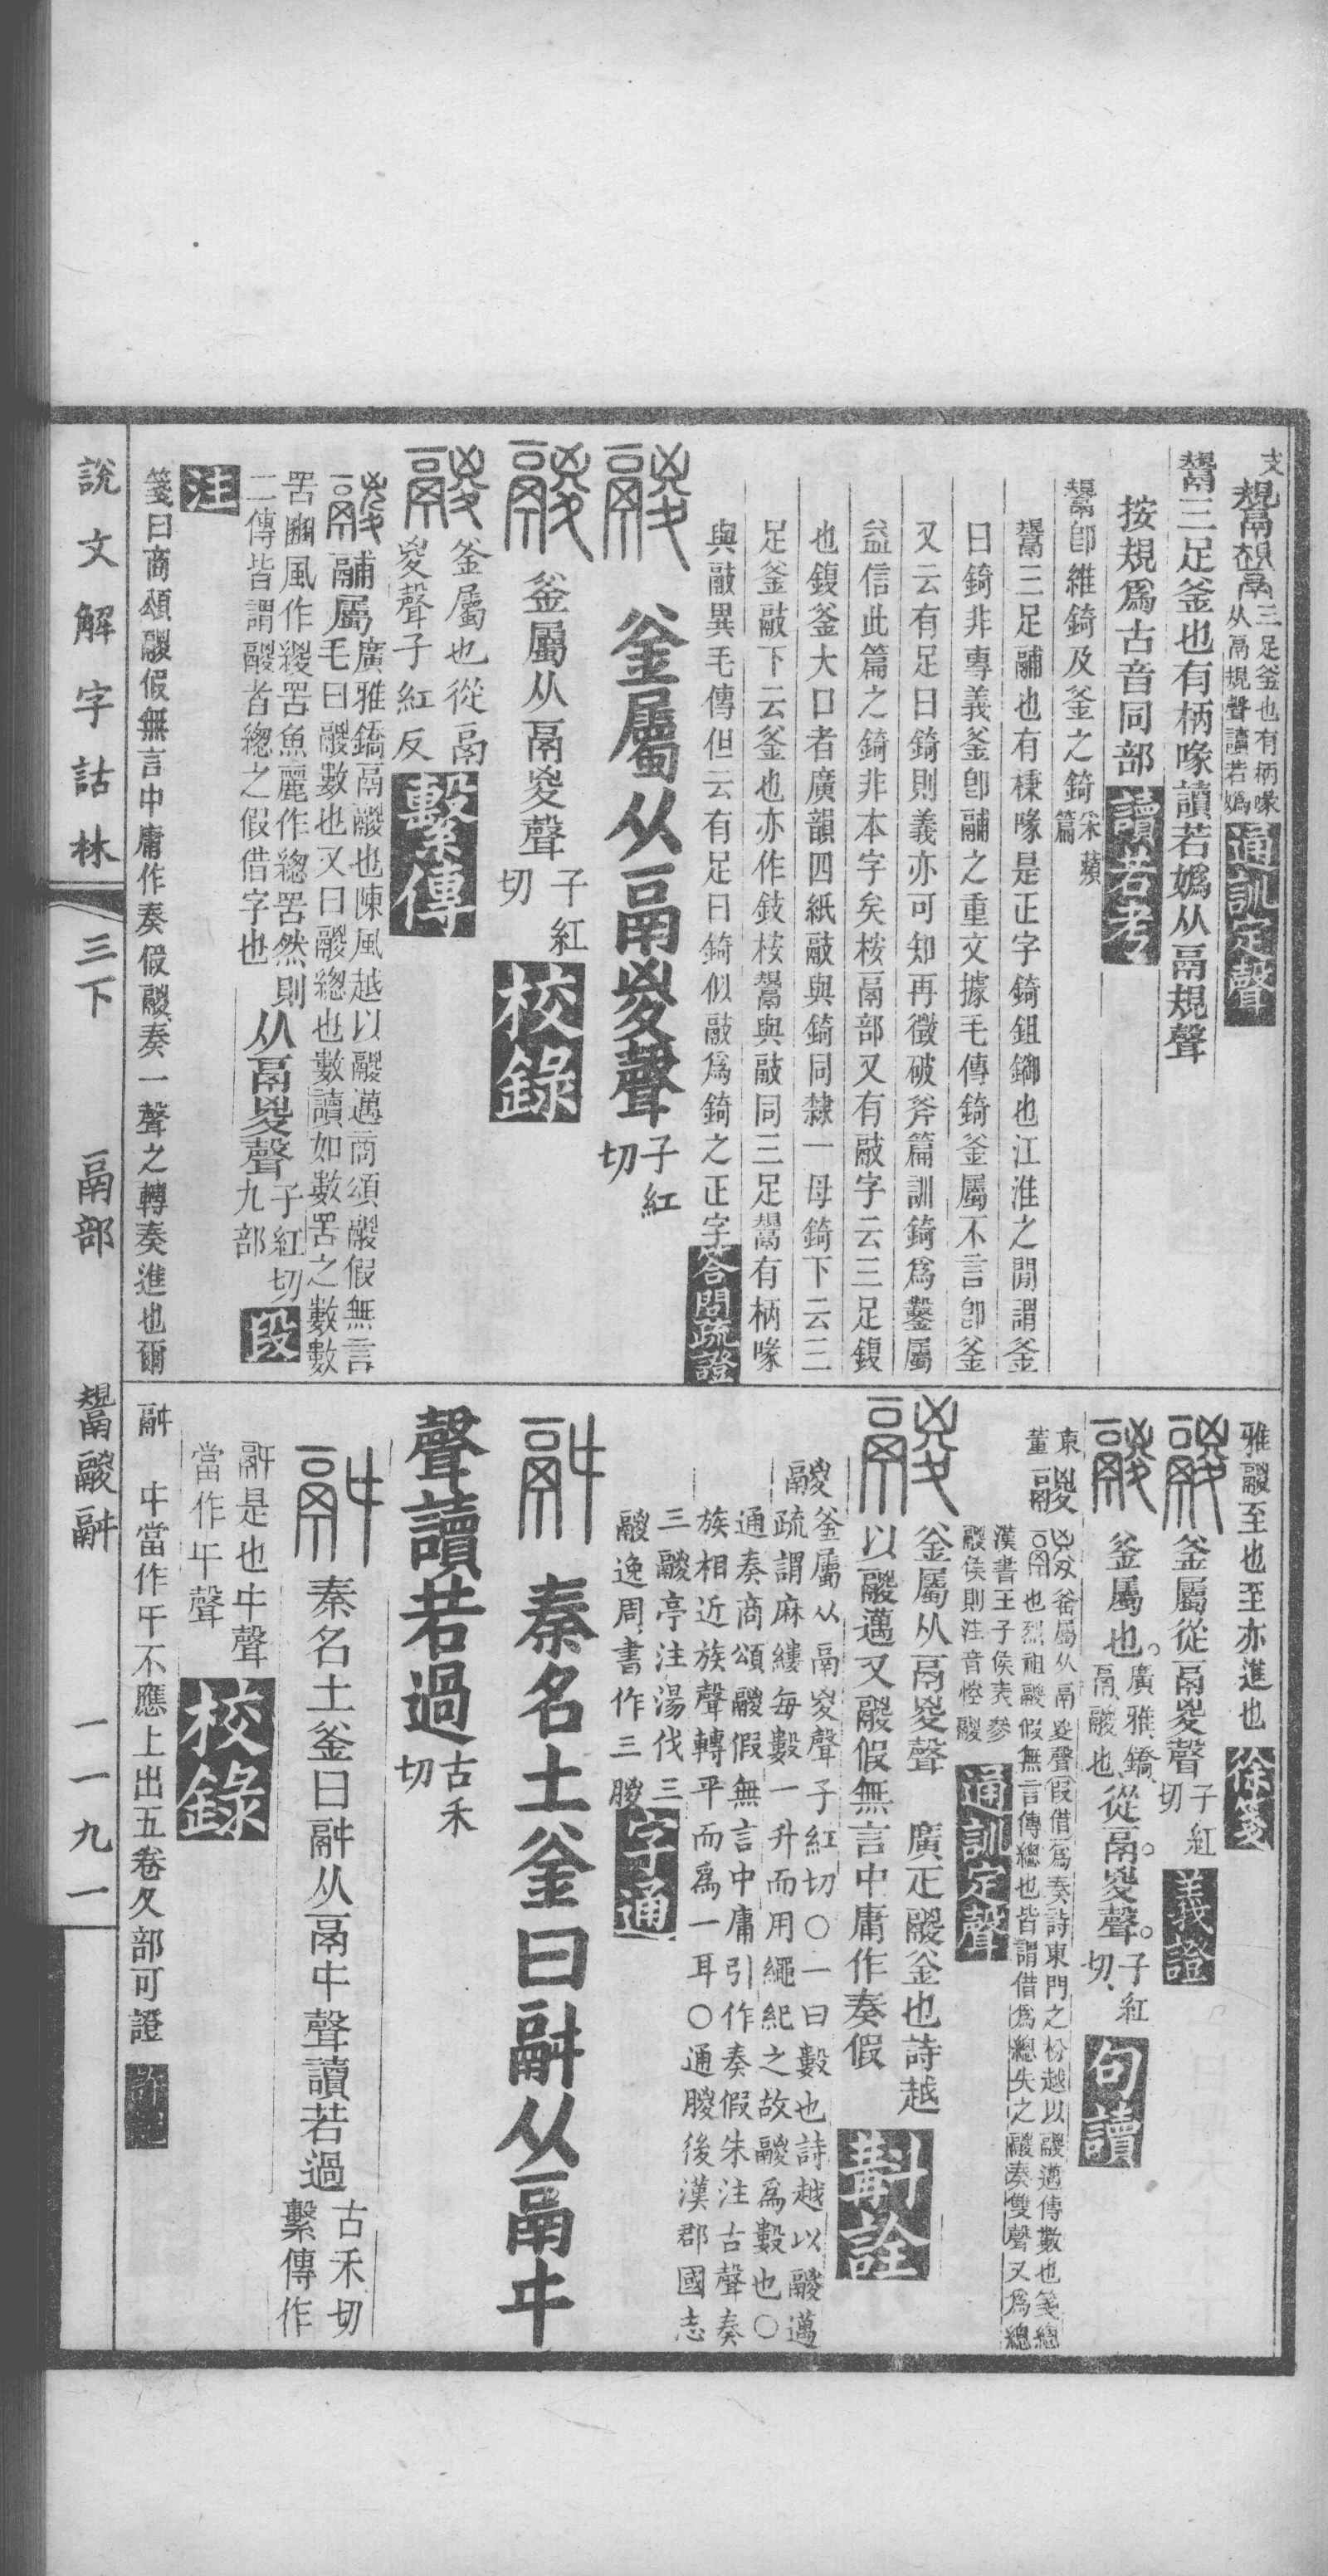 支鬹 三足釜也有柄喙
从鬲規聲讀若嬀 通訓定聲
鬹三足釜也有柄喙讀若嬀从鬲規聲
按規爲古音同部 讀若考
鬹卽維錡及釜之錡采蘋篇
鬹三足鬴也有棅喙是正字錡鉏鋤也江淮之閒謂釜
曰錡非專義釜卽鬴之重文據毛傳錡釜屬不言卽釜
又云有足曰錡則義亦可知再徵破斧篇訓錡爲鑿屬
益信此篇之錡非本字矣桉鬲部又有䰙字云三足鍑
也鍑釜大口者廣韻四紙䰙與錡同隸一母錡下云三
足釜䰙下云釜也亦作䥴桉鬹與䰙同三足鬹有柄喙
與䰙異毛傳但云有足曰錡似䰙爲錡之正字 答問疏證
鬷 釜屬从鬲㚇聲子紅切
鬷 釜屬从鬲㚇聲子紅切 校錄
鬷 釜屬也從鬲
㚇聲子紅反 繫傳
鬷 鬴屬 廣雅鐈鬲鬷也陳風越以鬷邁商頌鬷假無言
毛曰鬷數也又曰鬷總也數讀如數罟之數數
罟豳風作緵罟魚麗作總罟然則
二傳皆謂鬷者總之假借字也 从鬲㚇聲 子紅切
九部 段
注
箋曰商頌鬷假無言中庸作奏假鬷奏一聲之轉奏進也爾
雅鬷至也至亦進也 徐箋
鬷 釜屬從鬲㚇聲子紅切 義證
鬷 釜屬也。廣雅鐈、
鬲、鬷也、從鬲。㚇聲。子紅切、 句讀
東董 鬷 釜屬从鬲㚇聲假借爲奏詩東門之枌越以鬷邁傳數也箋總
也烈祖鬷假無言傳總也皆謂借爲總失之鬷奏雙聲又爲總
漢書王子侯表參
鬷侯則注音惾鬷 通訓定聲
鬷 釜屬从鬲㚇聲 廣疋鬷釜也詩越
以鬷邁又鬷假無言中庸作奏假 斠詮
鬷 釜屬从鬲㚇聲子紅切〇一曰數也詩越以鬷邁
疏謂麻縷每數一升而用繩紀之故鬷爲數也〇
通奏商頌鬷假無言中庸引作奏假朱注古聲奏
族相近族聲轉平而爲一耳〇通朡後漢郡國志
三鬷亭注湯伐三
鬷逸周書作三朡 字通
䰛 秦名土釜曰䰛从鬲㐄
聲讀若過古禾切
䰛 秦名土釜曰䰛从鬲㐄聲讀若過古禾切
繫傳作
䰛是也㐄聲
當作𠦒聲 校錄
䰛 㐄當作㐄不應上出五卷夂部可證 訂
說文解字詁林 三下 鬲部 鬹鬷䰛 一一九一